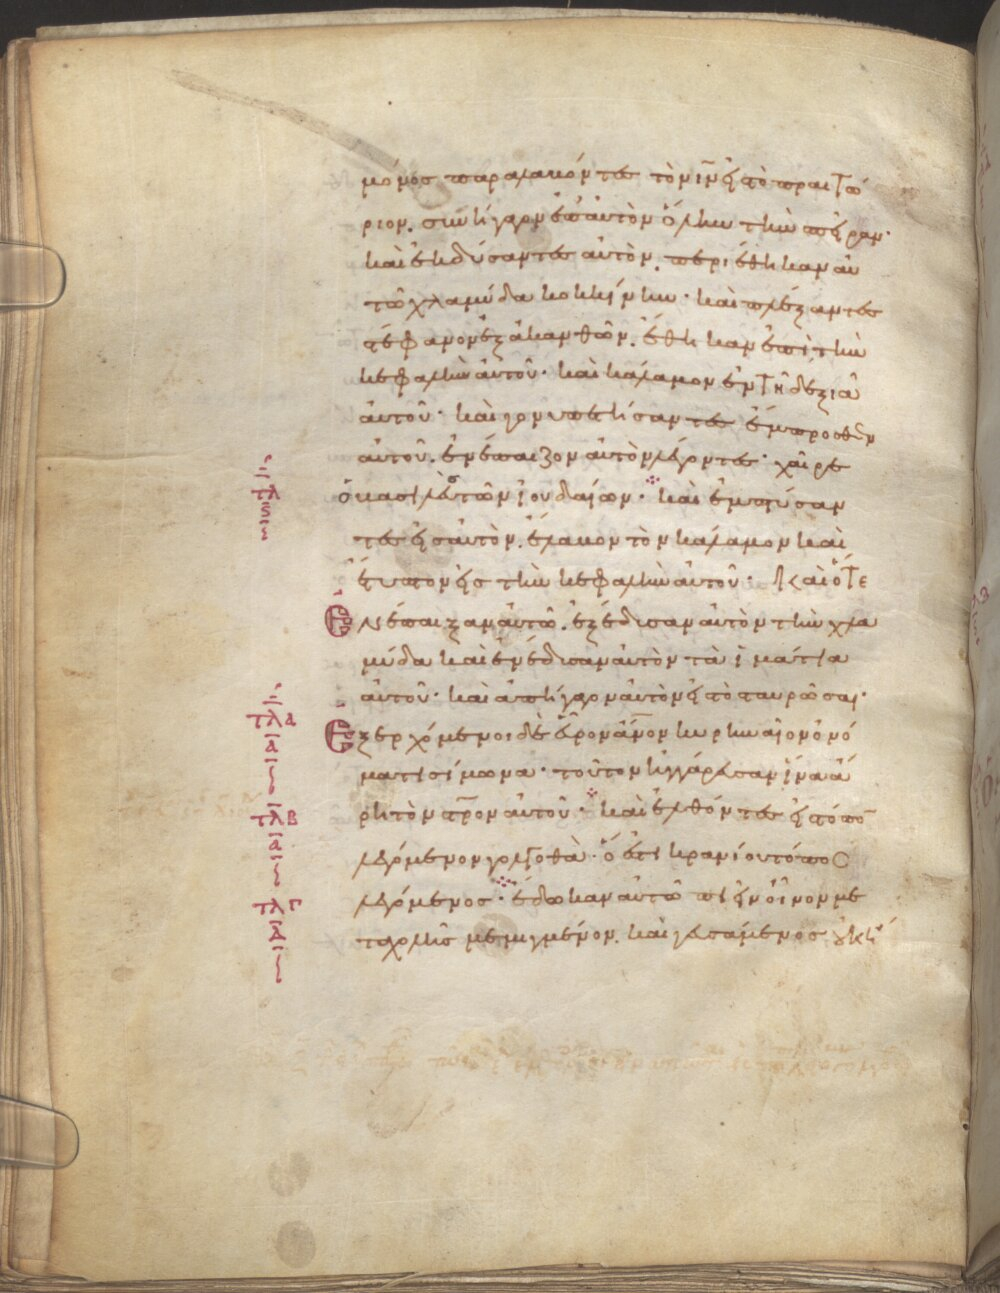 μόνος παραλαβόντες τὸν ιν εἰς τὸ πραιτώ
ριον. συνήγαγον ἐπ αὐτὸν ὅλην τὴν σπεῖραν·
καὶ ἐκδύσαντες αὐτὸν. περιέθηκαν αυ
τῶ χλαμύδα κοκκίνην· καὶ πλέξαντες
στέφανον ἐξ ἀκανθῶν. ἔθηκαν ἐπὶ τὴν
κεφαλὴν αὐτοῦ· καὶ κάλαμον ἐν τῆ δεξιᾶ
αὐτοῦ· καὶ γονυπετήσαντες ἔμπροσθεν
αὐτοῦ. ἐνέπαιζον αὐτὸν λέγοντες· χαῖρε
ὁ βασιλεὺς τῶν ἰουδαίων· καὶ ἐμπτύσαν
τες εἰς αὐτὸν. ἔλαβον τὸν κάλαμον καὶ
ἔτυπτον εἰς τὴν κεφαλὴν αὐτοῦ· Καὶ ὅτε
Ἐνέπαιξαν αὐτῶ. ἐξέδισαν αὐτὸν τὴν χλα
μύδα καὶ ἐνέδισαν αὐτὸν τὰ ἱμάτια
αὐτοῦ· καὶ ἀπήγαγον αὐτὸν εἰς τὸ σταυρῶσαι·
Ἐξερχόμενοι δὲ εὗρον ἄνον κυρηναῖον ὀνό
ματι σίμωνα· τοῦτον ἠγγάρευσαν ἵνα ἄ
ρη τὸν στρον αὐτοῦ· καὶ ἐλθόντες εἰς τόπο
λεγόμενον γολγοθὰ· ὅ ἐστι κρανίου τόπος
λεγόμενος· ἔδωκαν αὐτῶ πιεῖν οἶνον με
τα χολῆς μεμιγμένον. καὶ γευσάμενος οὐκ ἤ
τλ
ς
τλα
α
τλβ
α
τλγ
δ